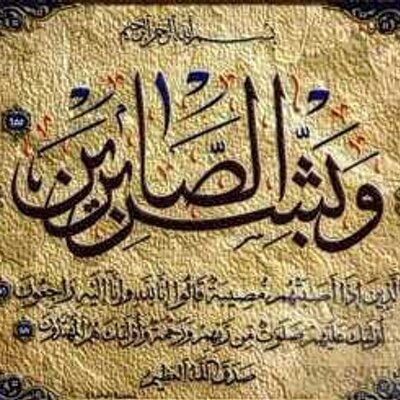 بسم الله الرحمن الرحيم
وَبَشِّرِ الصَّابِرِينَ
١٥٥
الَّذِينَ إِذَا أَصَابَتْهُمْ مُصِيبَةٌ قَالُوا إِنَّا لِلَّهِ وَإِنَّا إِلَيْهِ رَاجِعُونَ
أُولَئِكَ عَلَيْهِمْ صَلَوَاتٌ مِنْ رَبِّهِمْ وَرَحْمَةٌ وَأُولَئِكَ هُمُ الْمُهْتَدُونَ
صدق الله العظيم